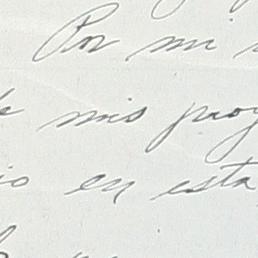 Por mi
mis proy
en esta